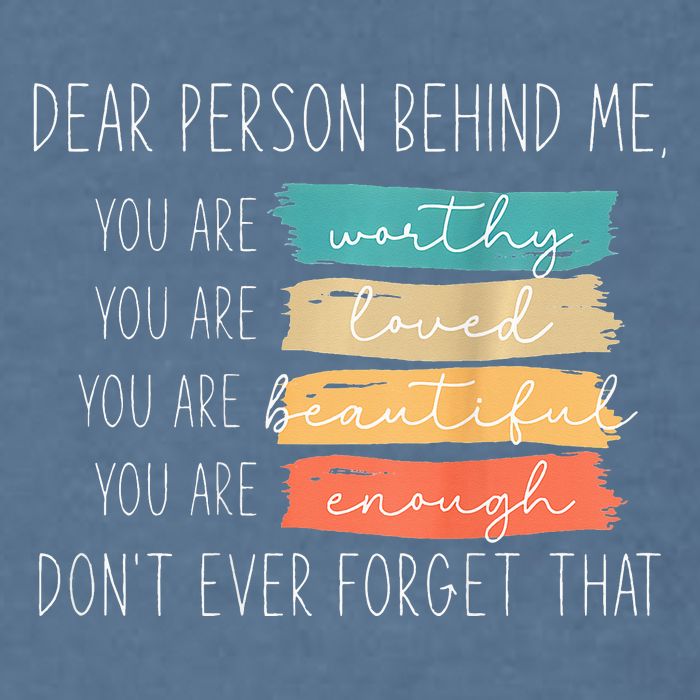 DEAR PERSON BEHIND ME,
YOU ARE worthy
YOU ARE loved
YOU ARE beautiful
YOU ARE enough
DON'T EVER FORGET THAT